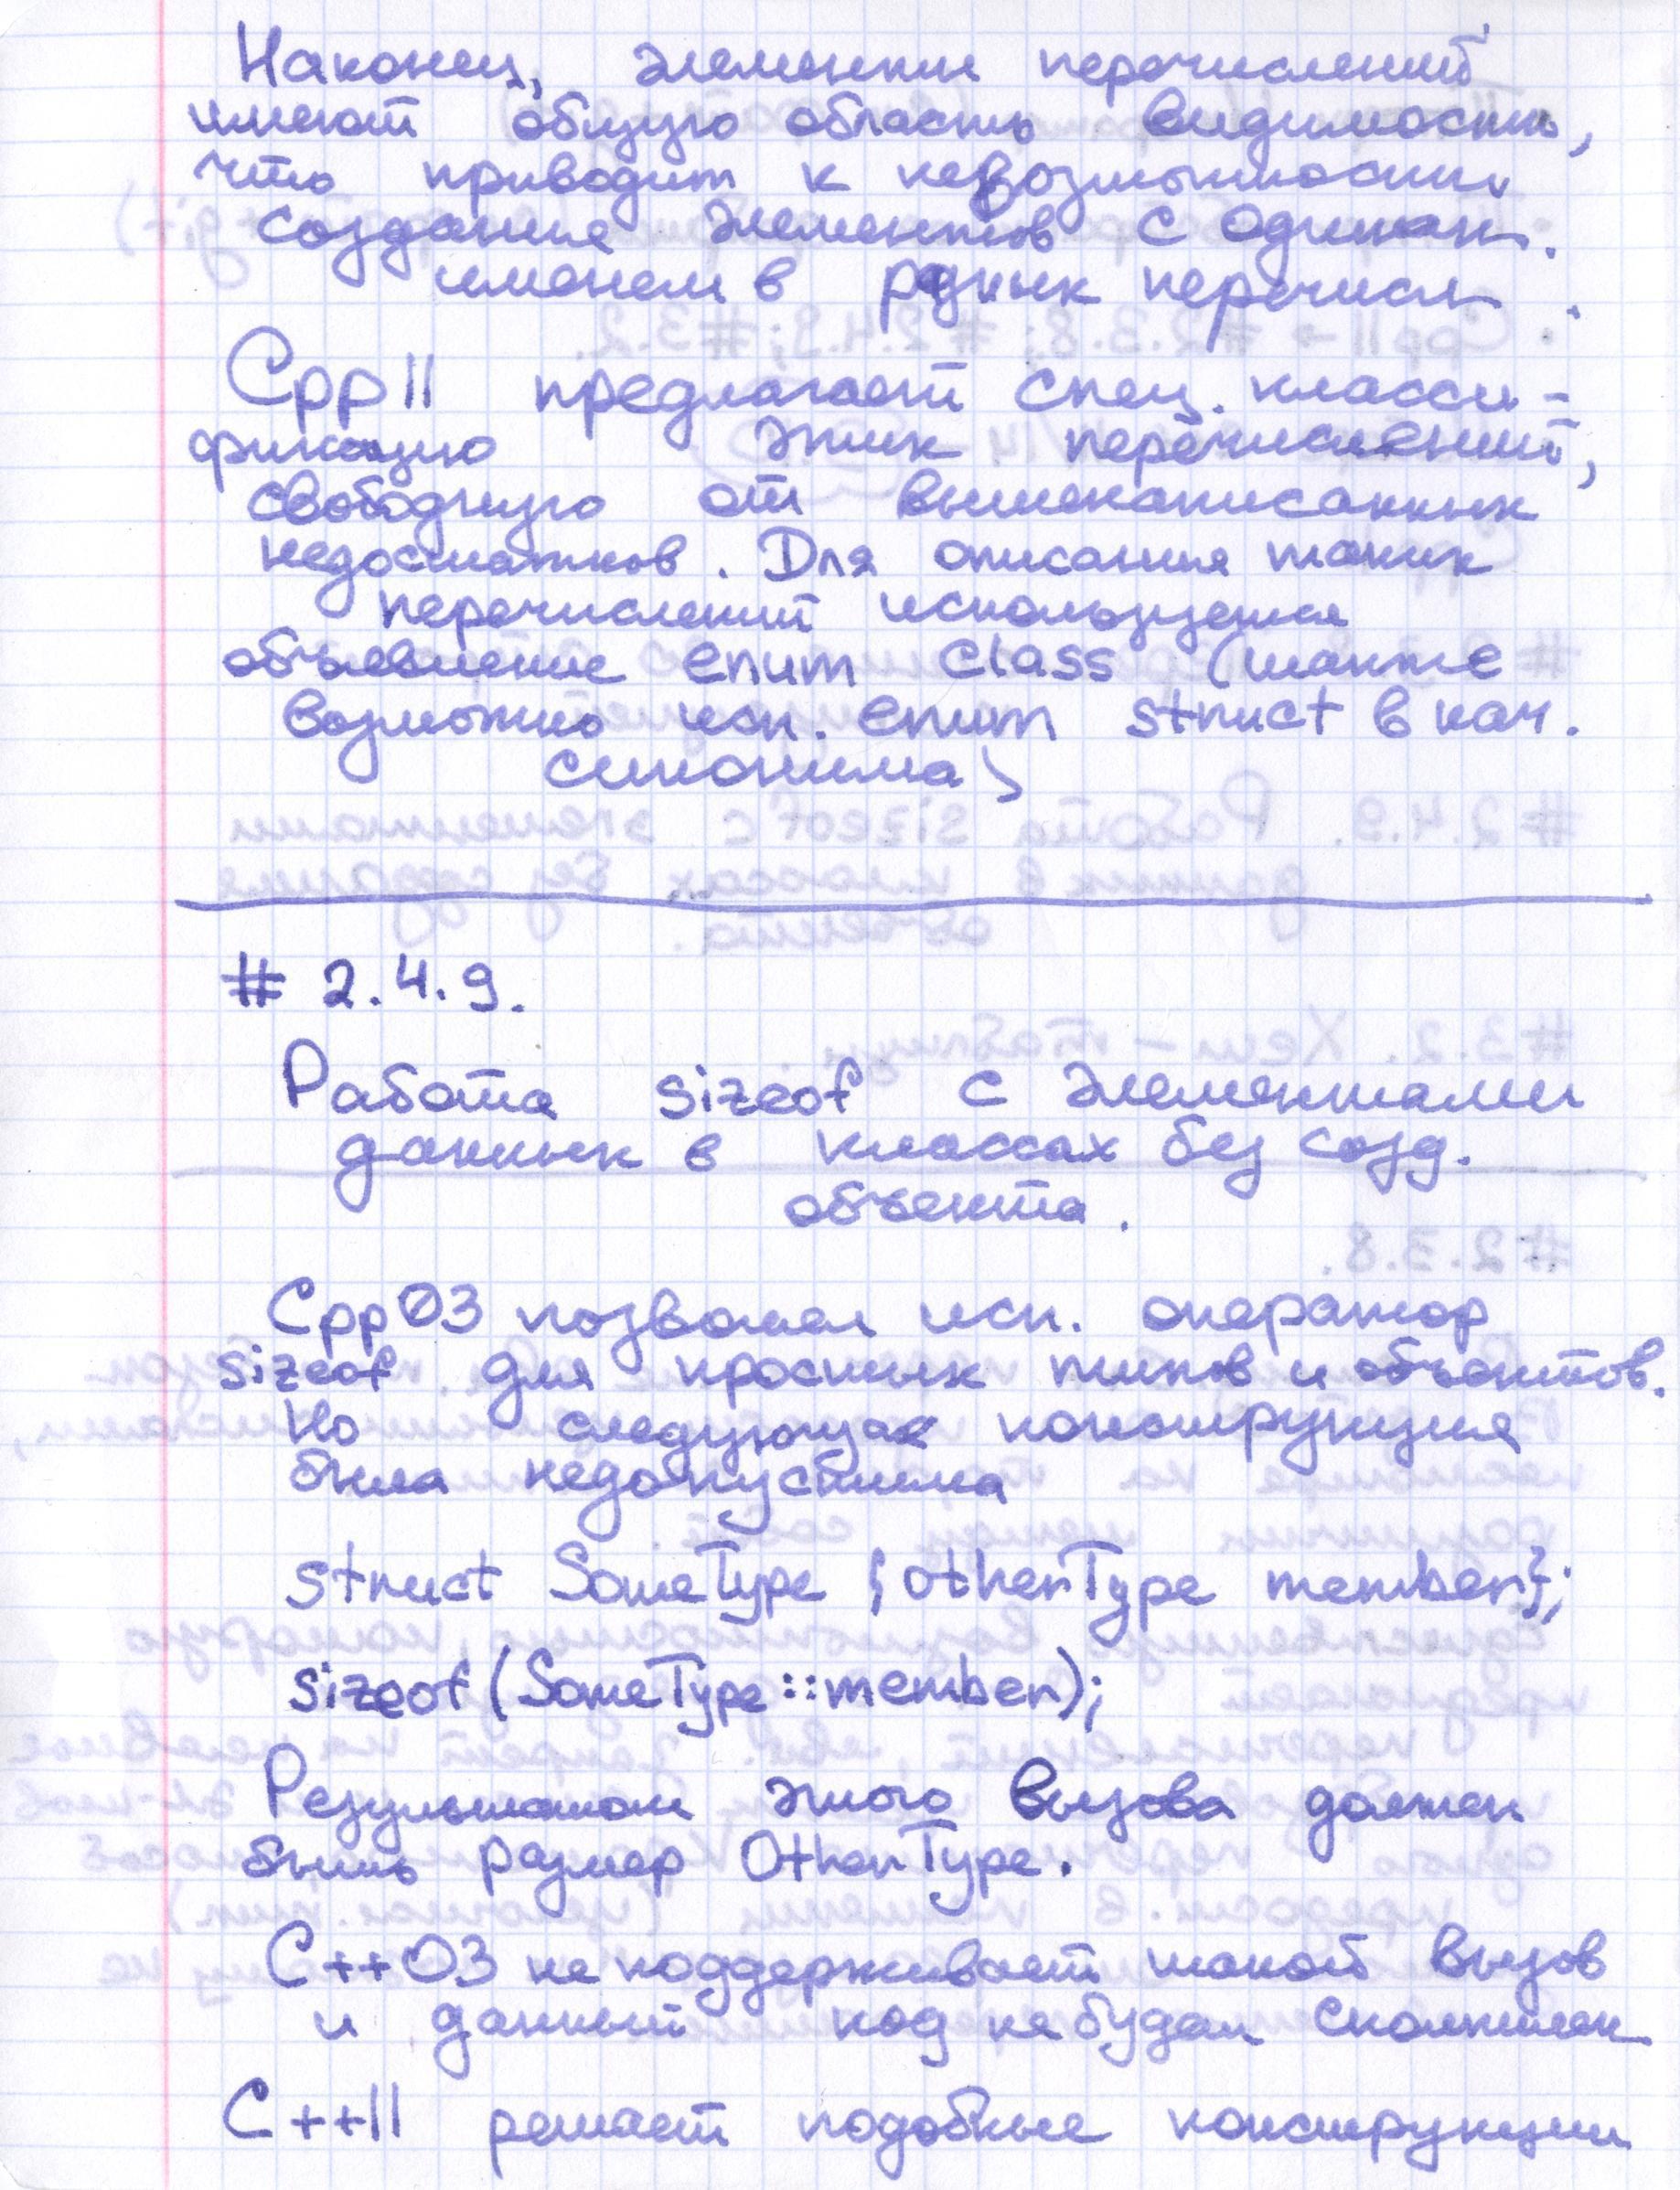 Наконец, элементы перечислений
имеют общую область видимости,
что приводит к невозможности
создания элементов с одинак.
именем в разных перечисл.
Cpp11 предлагает спец. класси-
фикацию этих перечислений,
свободную от вышенаписанных
недостатков. Для описания таких
перечислений используется
объявление enum class (также
возможно исп. enum struct в кач.
синонима)
# 2.4.9.
Работа sizeof с элементами
данных в классах без созд.
объекта.
Cpp03 позволял исп. оператор
sizeof для простых типов и объектов.
Но следующая конструкция
была недопустима
struct SomeType {otherType member};
sizeof(SomeType::member);
Результатом этого вызова должен
быть размер OtherType.
C++03 не поддерживает такой вызов
и данный код не будет скомпилен
C++11 решает подобные конструкции